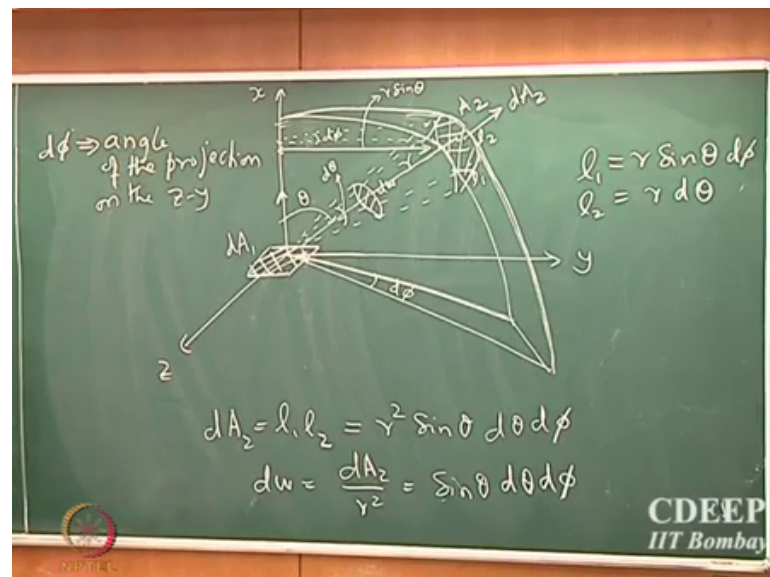 dϕ ⇒ angle
of the projection
on the z-y
x
r sinθ
A2
dA2
dϕ
l2
l1
r
dω
dθ
θ
dA1
y
dϕ
z
l1 = r sinθ dϕ
l2 = r dθ
dA2 = l1 l2 = r² sinθ dθ dϕ
dω = dA2/r² = sinθ dθ dϕ
CDEEP
IIT Bombay
NPTEL